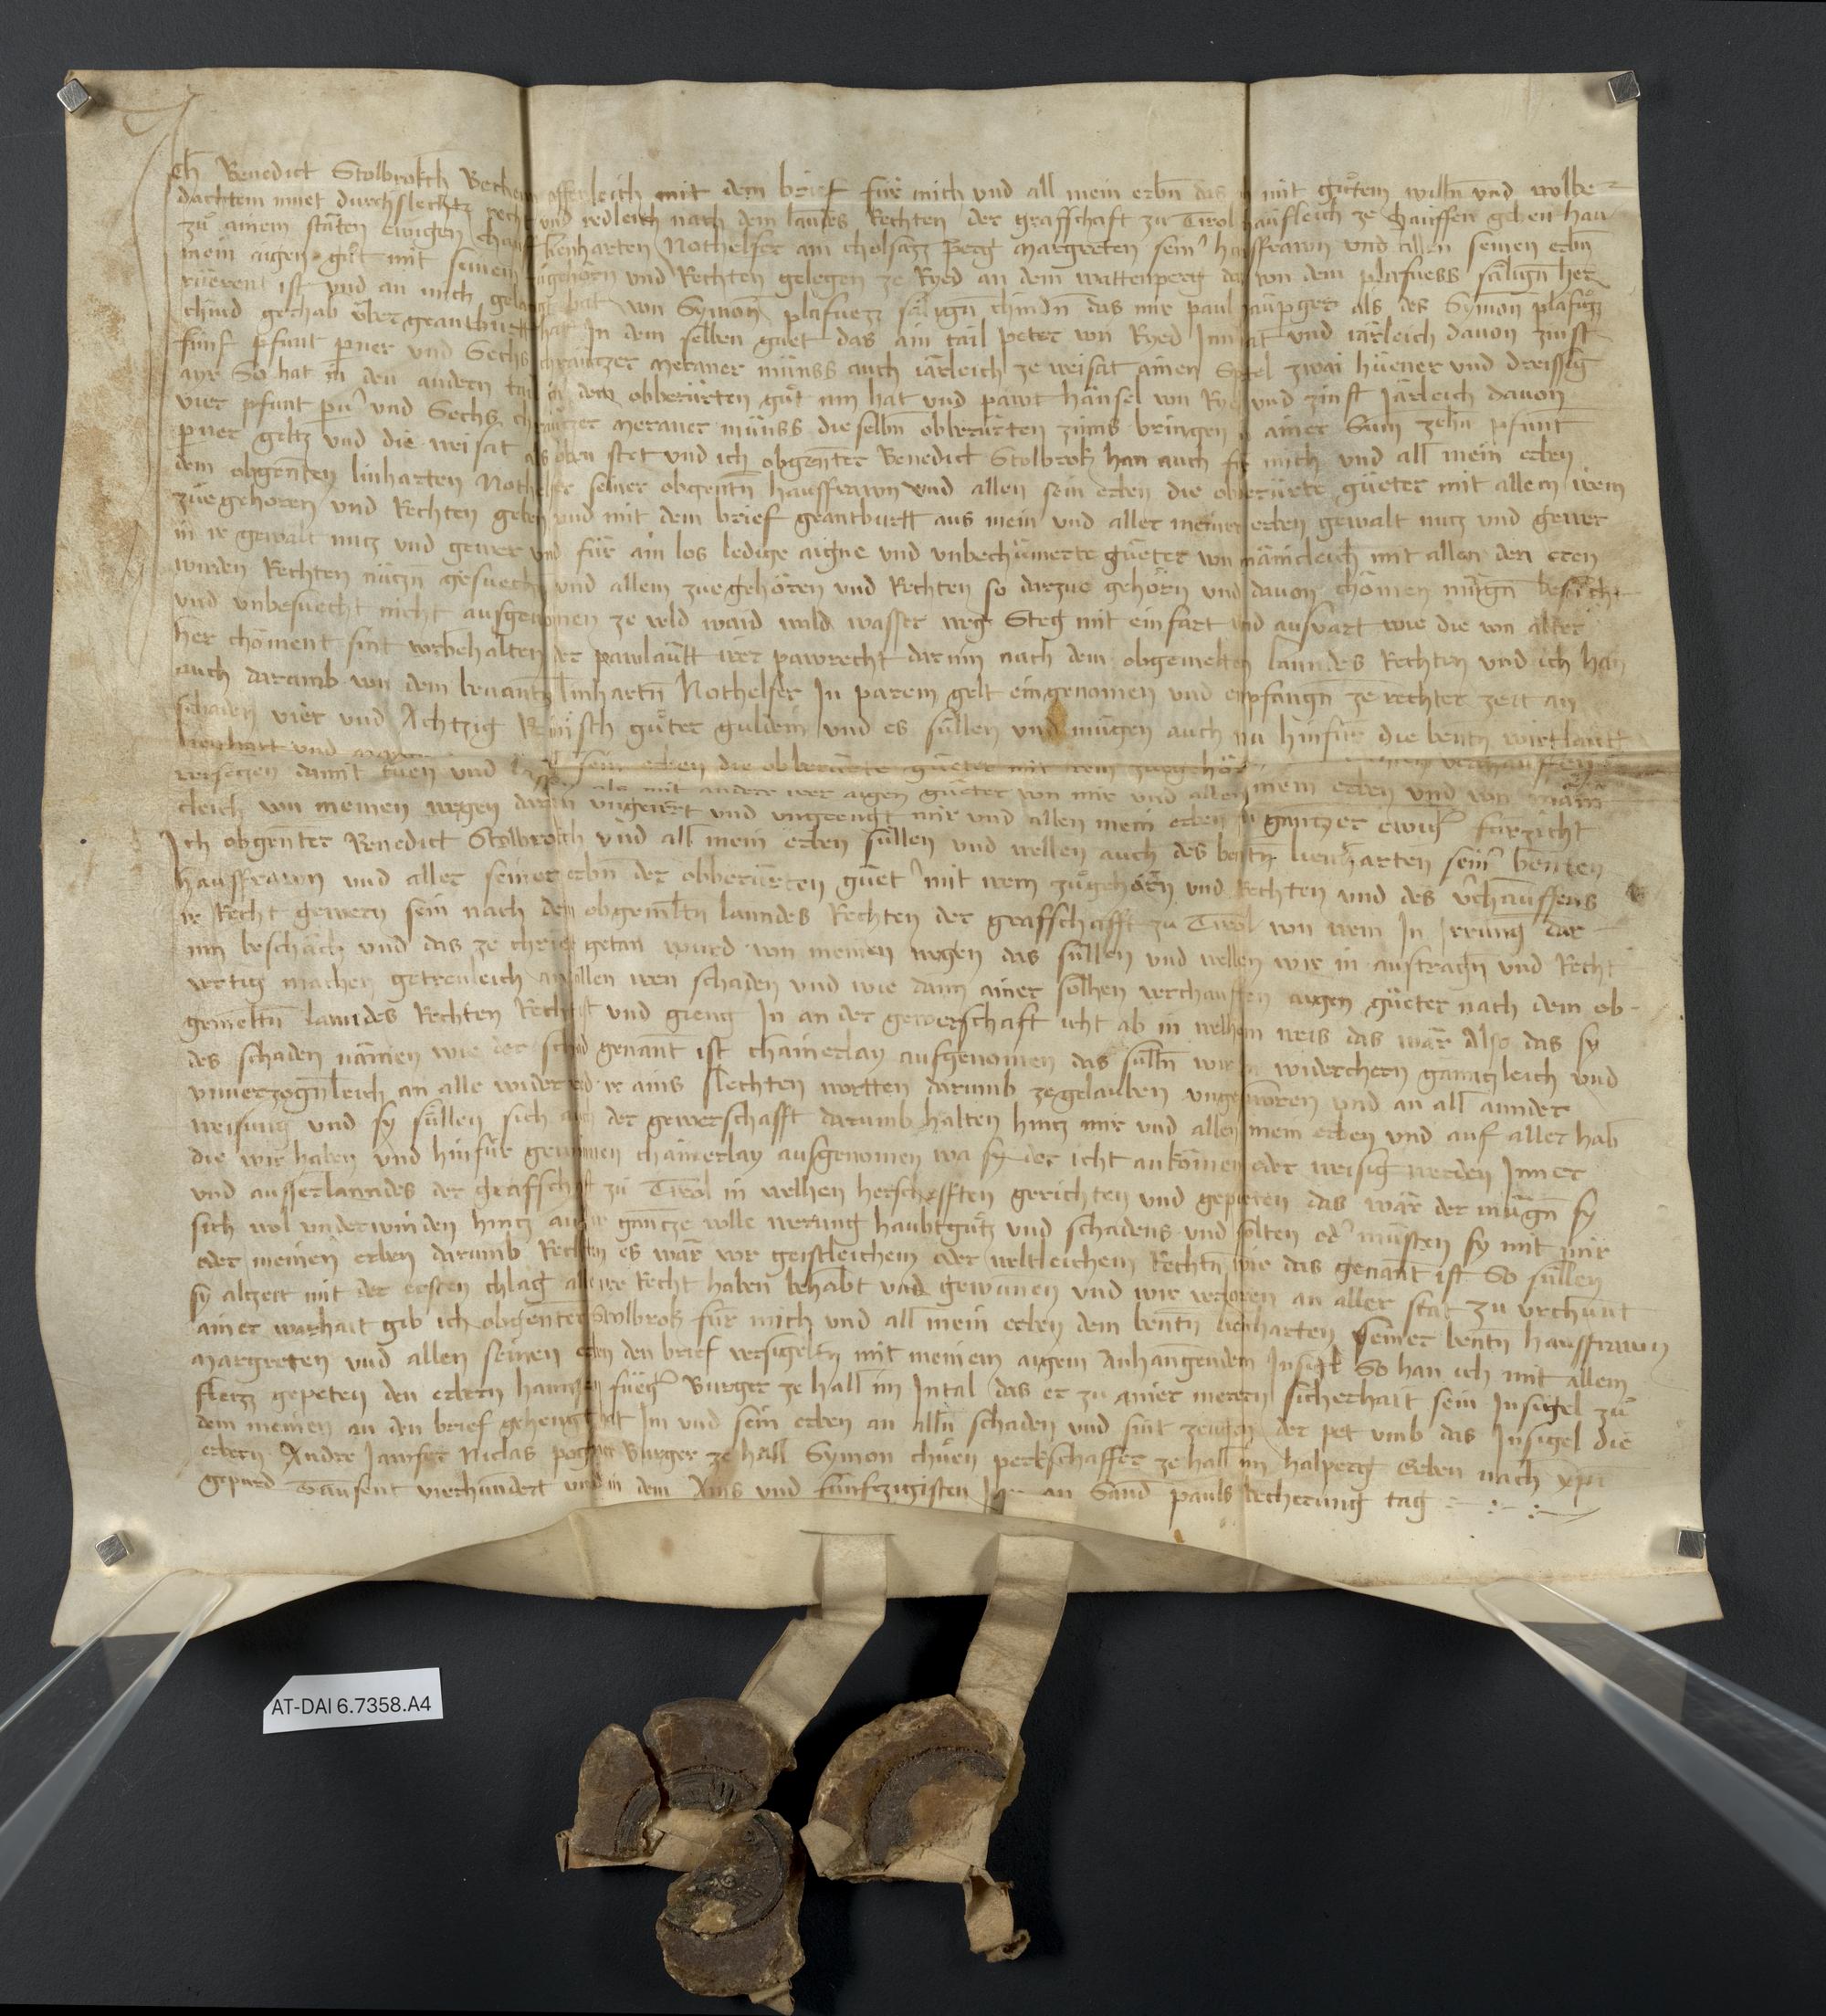 Ich Benedict Stolbrokch Vechenn offenleich mit dem brief für mich vnd all mein erbn das ich mit gůtem willn vnd wolbe-
dachtem muet durchslechtz recht vnd redleich nach dem lanndes Rechten der grafschaft zu Tirol kaufleich ze chauffen geben han
zů ainem stäten ewigen chauf lienharten Nothelfer am cholsazz perg margreten seinr hausfrawn vnd allen seinen erbn
mein aigen gůt mit seinem zůgehorn vnd Rechten gelegen ze Ryed an dem wattenperg das von dem plafuess sälign her
rüerent ist vnd an mich gelangt hat von Symon plafuezz sälign chindn das mir paul als des Symon plafuozz
chind gerhab übergeantburtt hat In dem selben guet das ain tail peter von Ryed Innhat vnd iärleich dauon zinst
fünf pfunt perner vnd Sechs chräutzer meraner münss auch iärleich ze weisat ainen zwai hüener vnd dreissig
ayr So hat in den andern tail in dem obberürten gůt inn hat vnd pawt hänsel von Ryed vnd zinst Järleich dauon
vier pfunt pnr vnd Sechs chräutzer meraner münss dieselbn obberürten zinns bringen in ainer Sum zehn pfunt
perner geltz vnd die weisat als oben stet vnd ich obgenter Benedict Stolbrok han auch für mich vnd all mein erben
dem obgenten linharten Nothelfer seiner obgentn hausfrawn vnd allen sein erben die obberürte güeter mit allem irem
zuegehoren vnd Rechten geben vnd mit dem brief geantburtt aus mein vnd aller meiner erben gewalt nutz vnd gewer
in ir gewalt nutz vnd gewer vnd für ain los ledige aigne vnd vnbechümerte güeter von mänicleich mit allen den eren
wirden Rechten nützn gesuech vnd allem zuegehören vnd Rechten so darzue gehörn vnd dauon chömen mügn besücht
vnd vnbesuecht nicht ausgenomen ze veld waid wald wasser weg Steg mit einfart vnd ausvart wie die von alter
her chöment sint vorbehalten der pawläutt irer pawrecht darinn nach dem obgemelten lanndes Rechten vnd ich han
auch darumb von dem benantn linhartn Nothelfer In parem gelt eingenomen vnd enpfangn ze rechter zeit an
schaden vier vnd Achtzig Reinisch gůter guldein vnd es süllen vnd mügen auch nu hinfür die bentn wirtläutt
lienhart vnd sein erben die obberürte güeter mit irem zuegehör verchauffen
versetzen damit tuen vnd lassen als mit anderr irer aigen güeter von mir vnd allen mein erben vnd von mäni
cleich von meinen wegen daran vngeirrt vnd vngeengt mir vnd allen mein erben in gantzer ewigr fürzicht
Ich obgenter Benedict Stolbrokch vnd all mein erben süllen vnd wellen auch des bentn lienharten seinr benten
hausfrawn vnd aller seiner erbn der obberürten güetr mit irem zůgehörn vnd Rechten vnd des vrchauffens
ir Recht gewern sein nach dem obgemeltn lanndes Rechten der grafschafft zu Tirol von wem In Irrung dar
inn beschäch vnd das ze chrieg getan wurd von meinen wegen das süllen vnd wellen wir in austragn vnd Recht
vertig machen getreuleich an allen iren schaden vnd wie dann ainer sölhen verchauften aigen güeter nach dem ob-
gemeltn lanndes Rechten Recht ist vnd gieng In an der gewerschaft icht ab in welhem weis das wär Also das sy
des schaden nämen wie der schad genant ist chainerlay aufgenomen das sülln wir in widerchern gäntzleich vnd
vnuerzogenleich an alle widerred ir ains slechten wortten darumb ze gelauben vngesworen vnd an all annder
weisung vnd sy süllen sich auch der gewerschafft darumb halten hintz mir vnd allen mein erben vnd auf aller hab
die wir haben vnd hinfür gewinnen chainerlay ausgenomen wa sy der icht ankömen oder weisig werden Inner
vnd ausserlanndes der grafschaft zu Tirol in welhen herschefften gerichten vnd gepieten das wär der mügn sy
sich wol vnderwinden hintz auf ir gantze volle werung haubtgůtz vnd schadens vnd solten odr müsten sy mit mir
oder meinen erben darumb Rechten es wär vor geistleichem oder weltleichem Rechtn wie das genant ist So süllen
sy altzeit mit der ersten chlag alle ire Recht haben behabt vnd gewunen vnd wir verloren an aller stat zu vrchunt
ainer warhait gib ich obgenter Stolbrok für mich vnd all mein erben dem bentn lienharten seiner bentn hausfrawn
margreten vnd allen seinen erben den brief versigeltn mit meinem aigem Anhangendem Insigl So han ich mit allem
fleizz gepeten den erbern hannsen fuegr Burger ze hall im Intal das er zu ainer merern sicherhait sein Insigel zů
dem meinen an den brief gehengt hat Im vnd sein erben an alln schaden vnd sint zeugen der pet vmb das Insigel die
erbern Andre Jawfer Niclas Burger ze hall Symon chuen perkschaffer ze hall im halperg Geben nach xpi
gepurd Tausent vierhundert vnd in dem Ains vnd fünfzigisten Jar an Sand pauls becherung tag
AT-DAI 6.7358.A4